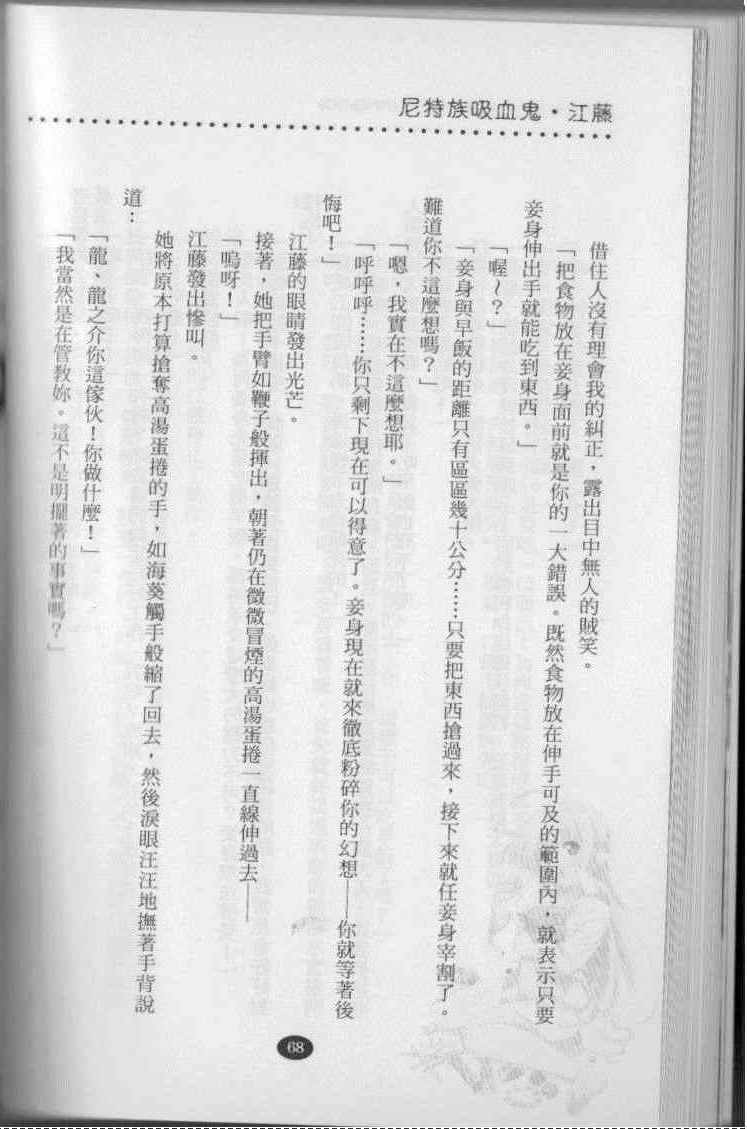 尼特族吸血鬼・江藤
借住人沒有理會我的糾正，露出目中無人的賊笑。
「把食物放在妾身面前就是你的一大錯誤。既然食物放在伸手可及的範圍內，就表示只要
妾身伸出手就能吃到東西。」
「喔～？」
「妾身與早飯的距離只有區區幾十公分……只要把東西搶過來，接下來就任妾身宰割了。
難道你不這麼想嗎？」
「嗯，我實在不這麼想耶。」
「呼呼呼……你只剩下現在可以得意了。妾身現在就來徹底粉碎你的幻想——你就等著後
悔吧！」
江藤的眼睛發出光芒。
接著，她把手臂如鞭子般揮出，朝著仍在微微冒煙的高湯蛋捲一直線伸過去——
「嗚呀！」
江藤發出慘叫。
她將原本打算搶奪高湯蛋捲的手，如海葵觸手般縮了回去，然後淚眼汪汪地撫著手背說
道：
「龍、龍之介你這傢伙！你做什麼！」
「我當然是在管教妳。這不是明擺著的事實嗎？」
68